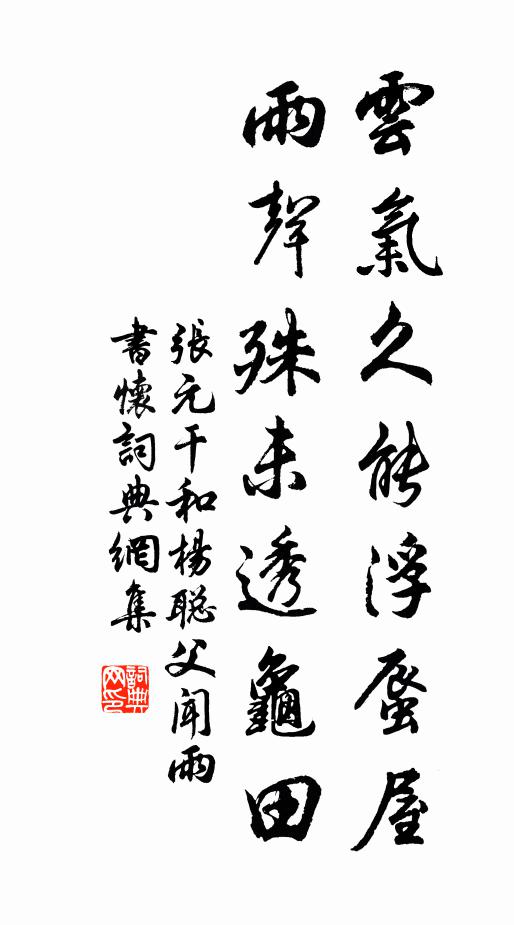 雲氣久能浮蜃屋
雨聲殊未透龜田
張元干和楊聡父聞雨
書懷詞典網集
詞典
网印